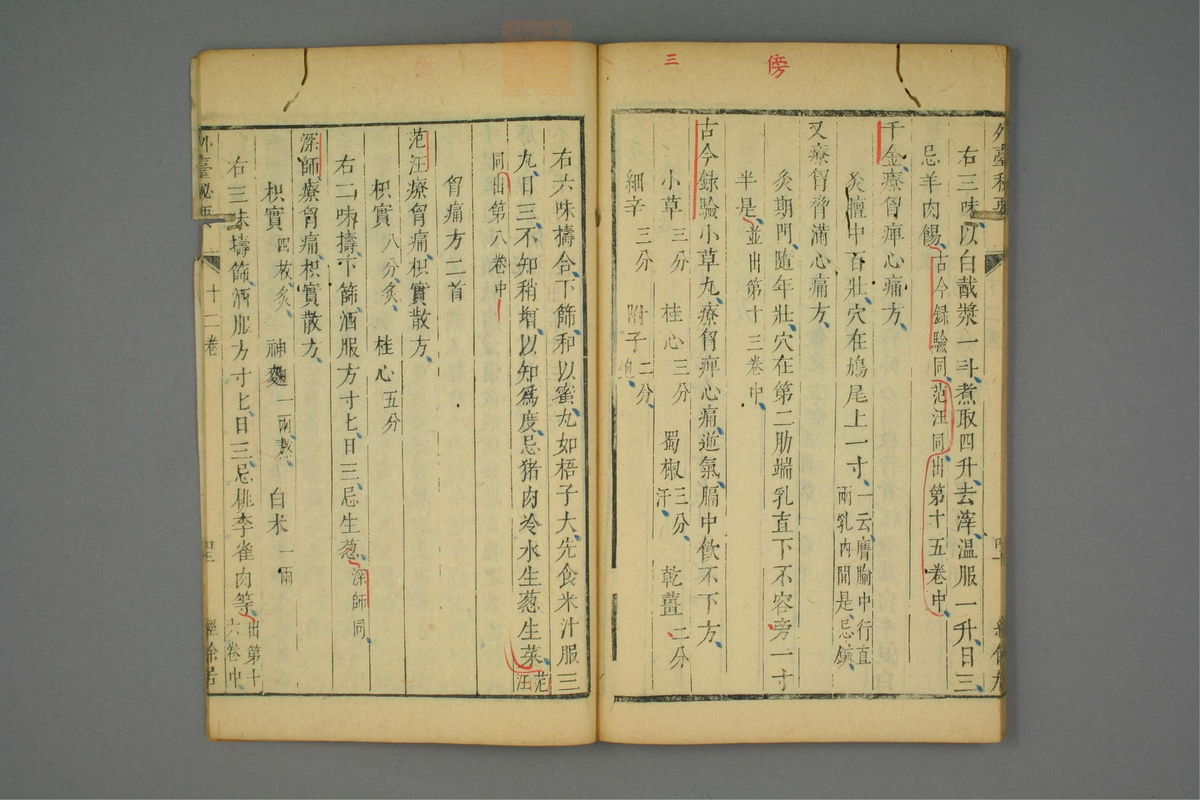 三
傍
右三味以白䤗漿一斗煮取四升去滓溫服一升日三
忌羊肉餳古今錄驗同范汪同出第十五卷中
千金療胷痺心痛方
灸膻中百壯穴在鳩尾上一寸一云膺腧中行直兩乳內間是忌鍼
又療胷脅滿心痛方
灸期門隨年壯穴在第二肋端乳直下不容旁一寸
半是並出第十三卷中
古今錄驗小草丸療胷痺心痛逆氣膈中飮不下方
小草三分 桂心三分 蜀椒三分汗 乾薑二分
細辛三分 附子二分炮
右六味擣合下篩和以蜜丸如梧子大先食米汁服三
丸日三不知稍增以知爲度忌猪肉冷水生葱生菜范汪
同出第八卷中
胷痛方二首
范汪療胷痛枳實散方
枳實八分炙 桂心五分
右二味擣下篩酒服方寸匕日三忌生葱深師同
深師療胷痛枳實散方
枳實四枚炙 神麴一兩熬 白朮一兩
右三味擣篩酒服方寸匕日三忌桃李雀肉等出第十六卷中
外臺秘要
十二卷
經餘居